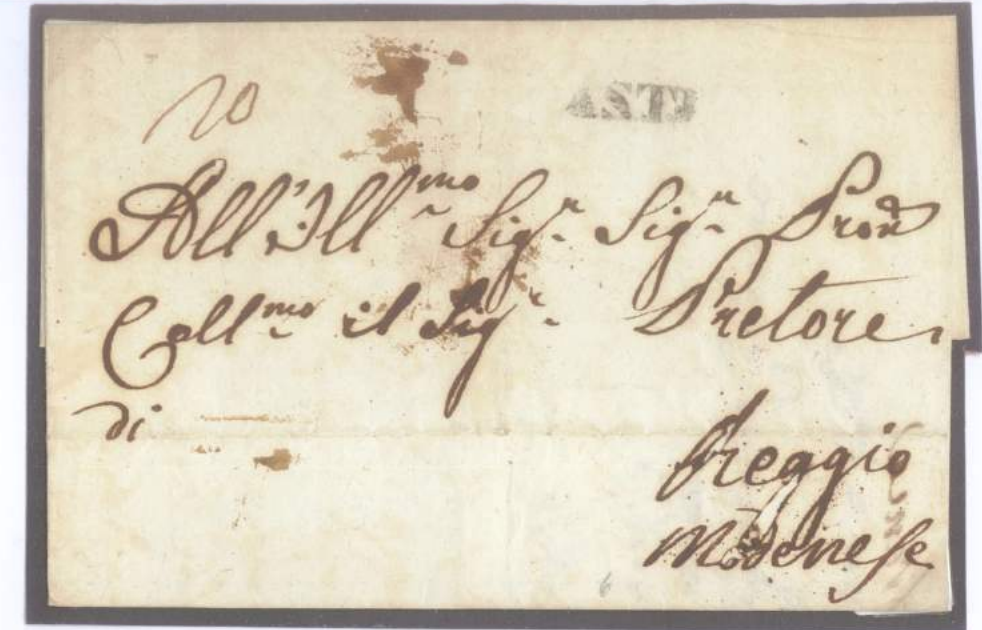 20
ASTI
All'Ill.mo Sig.r Sig.r Pron
Coll.mo il Sig.r Pretore
di
Reggio
Modenese
6